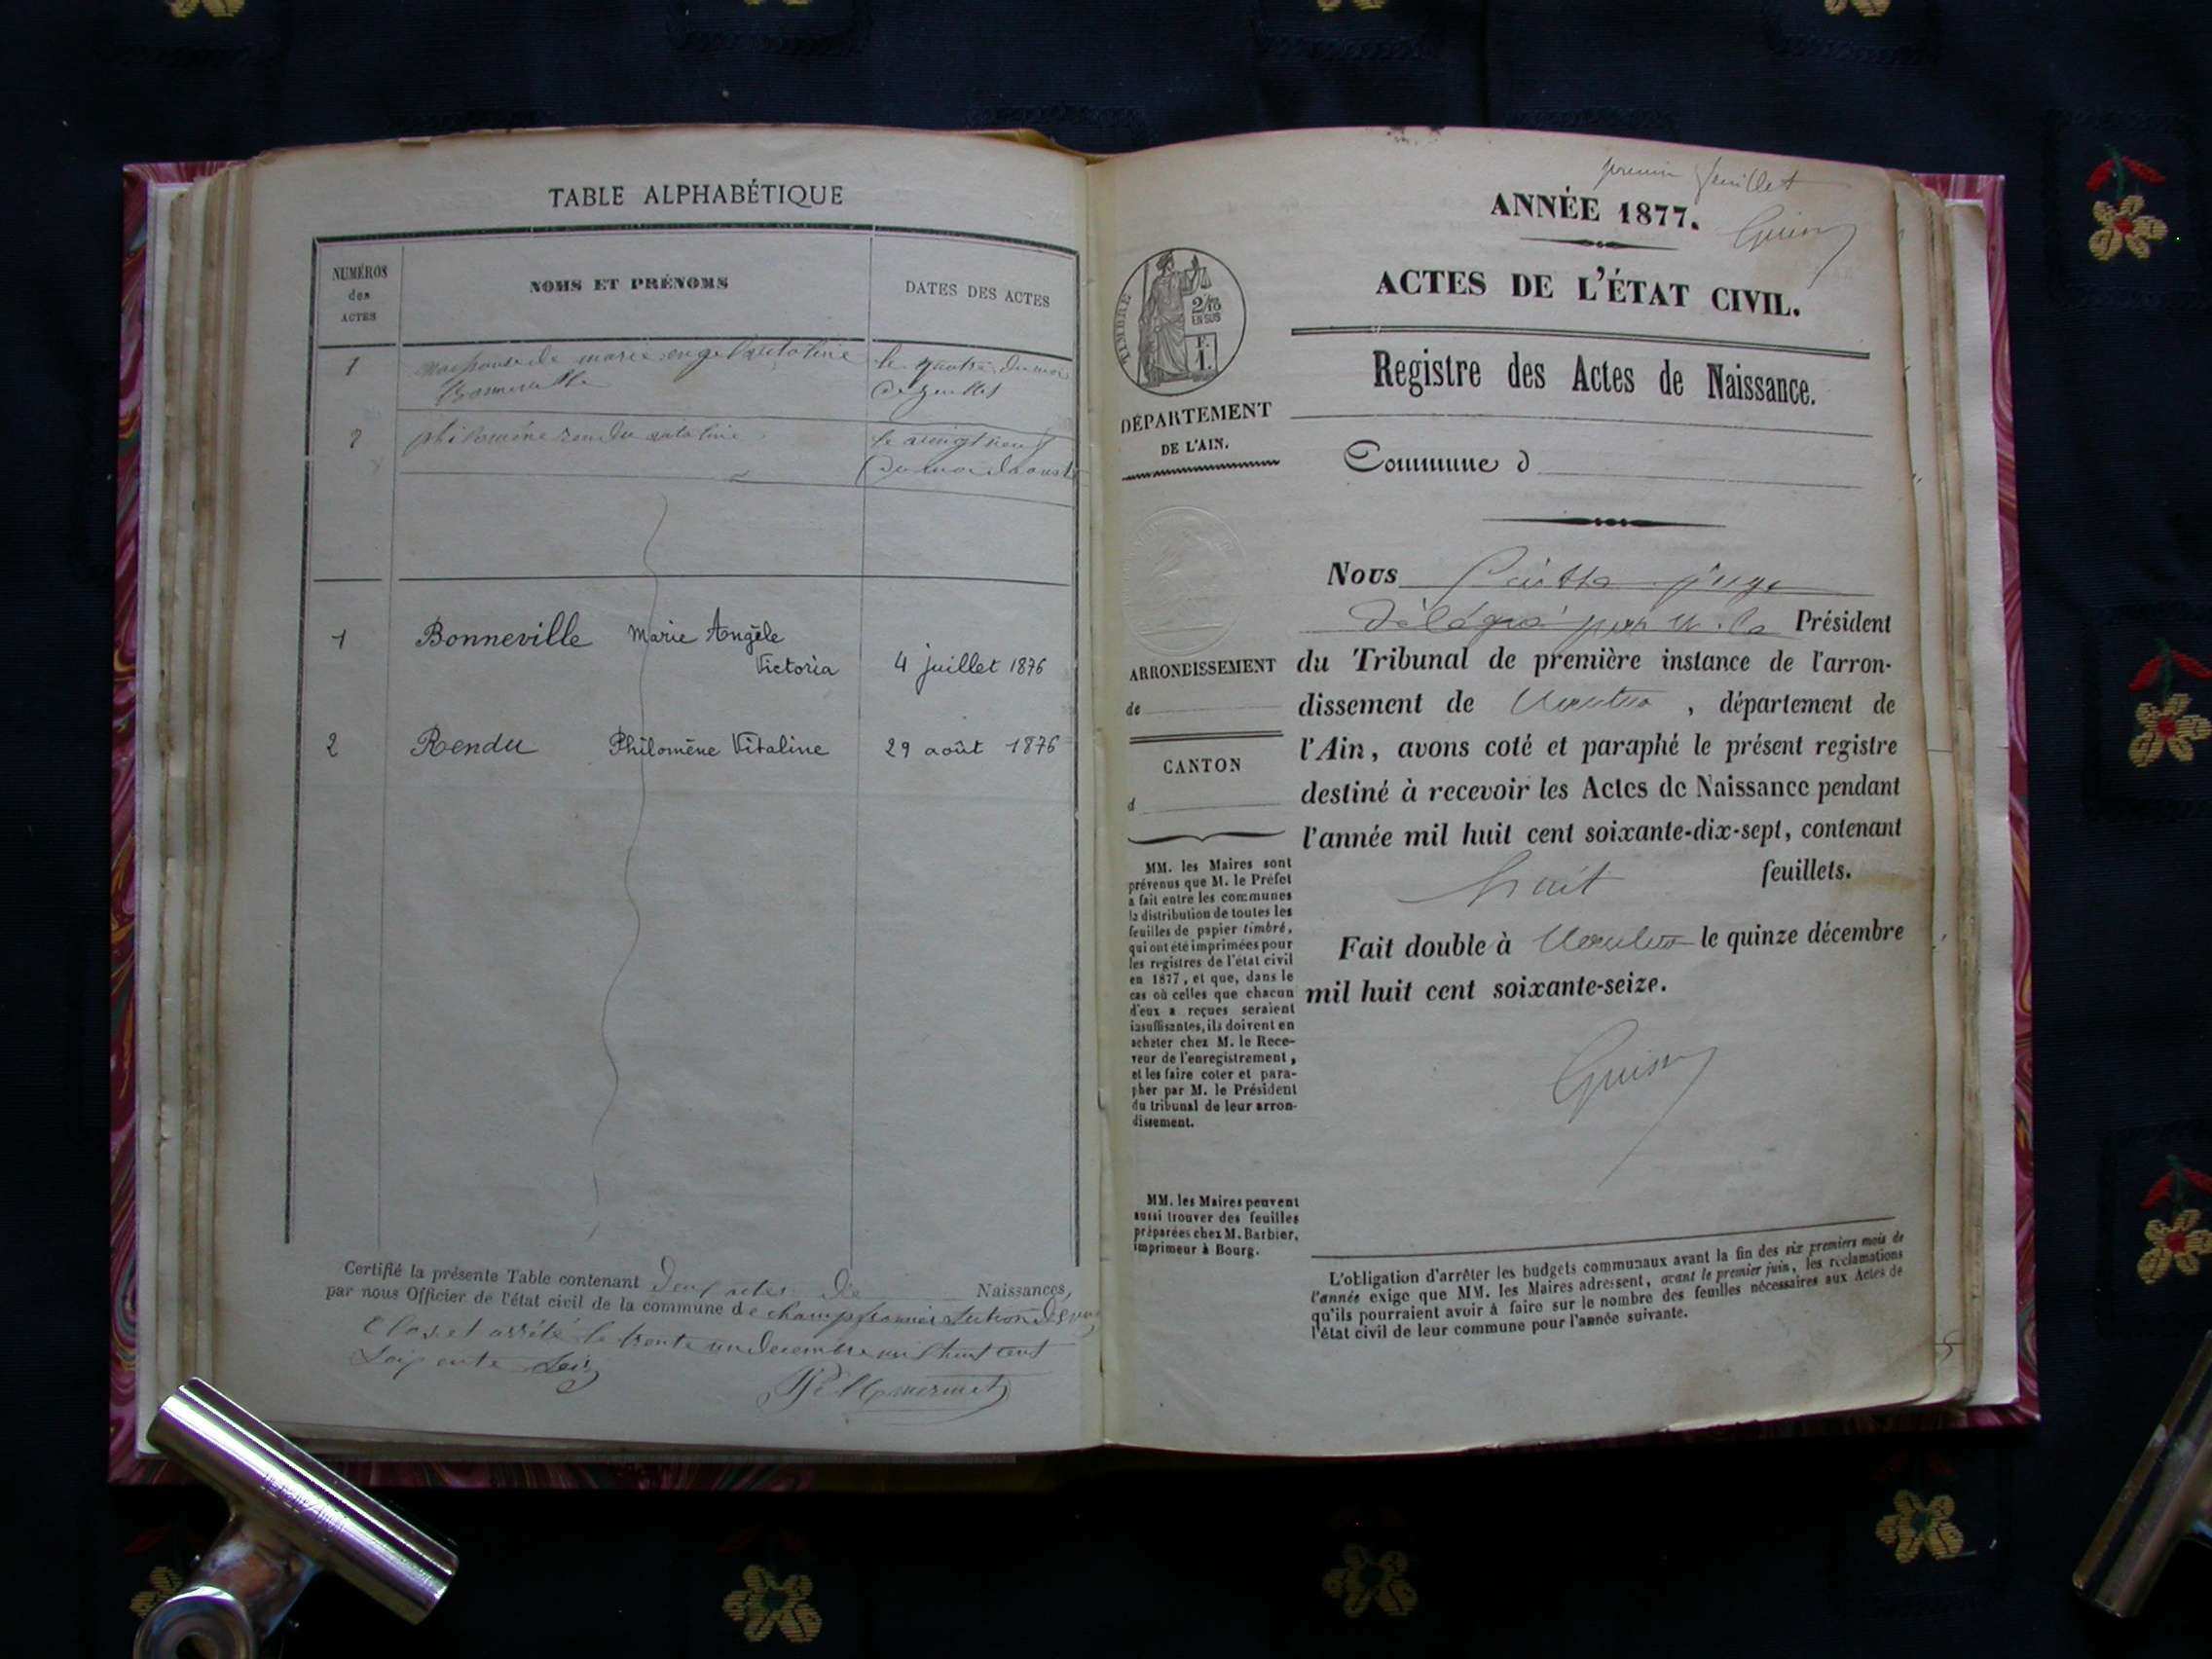 TABLE ALPHABÉTIQUE
NUMÉROS
des
ACTES
NOMS ET PRÉNOMS
DATES DES ACTES
1
de marie
le quatre du mois
de
2
philomène rendu
le vingt neuf
du mois daoust
1 Bonneville Marie Angèle
Victoria 4 juillet 1876
2 Rendu Philomène Vitaline 29 août 1876
Certifié la présente Table contenant deux actes de Naissances,
par nous Officier de l'état civil de la commune de
Clos et arrêté le trente un decembre mil huit cent
premier feuillet
ANNÉE 1877.
ACTES DE L'ÉTAT CIVIL.
TIMBRE
2/10
EN SUS
F.
1.
Registre des Actes de Naissance.
DÉPARTEMENT
DE L'AIN.
Commune d
ARRONDISSEMENT
de
CANTON
d
MM. les Maires sont
prévenus que M. le Préfet
a fait entre les communes
la distribution de toutes les
feuilles de papier timbré,
qui ont été imprimées pour
les registres de l'état civil
en 1877, et que, dans le
cas où celles que chacun
d'eux a reçues seraient
insuffisantes, ils doivent en
acheter chez M. le Rece-
veur de l'enregistrement,
et les faire coter et para-
pher par M. le Président
du tribunal de leur arron-
dissement.
MM. les Maires peuvent
aussi trouver des feuilles
préparées chez M. Barbier,
imprimeur à Bourg.
Nous juge
délégué par M. le Président
du Tribunal de première instance de l'arron-
dissement de Nantua, département de
l'Ain, avons coté et paraphé le présent registre
destiné à recevoir les Actes de Naissance pendant
l'année mil huit cent soixante-dix-sept, contenant
huit feuillets.
Fait double à Nantua le quinze décembre
mil huit cent soixante-seize.
L'obligation d'arrêter les budgets communaux avant la fin des six premiers mois de
l'année exige que MM. les Maires adressent, avant le premier juin, les réclamations
qu'ils pourraient avoir à faire sur le nombre des feuilles nécessaires aux Actes de
l'état civil de leur commune pour l'année suivante.